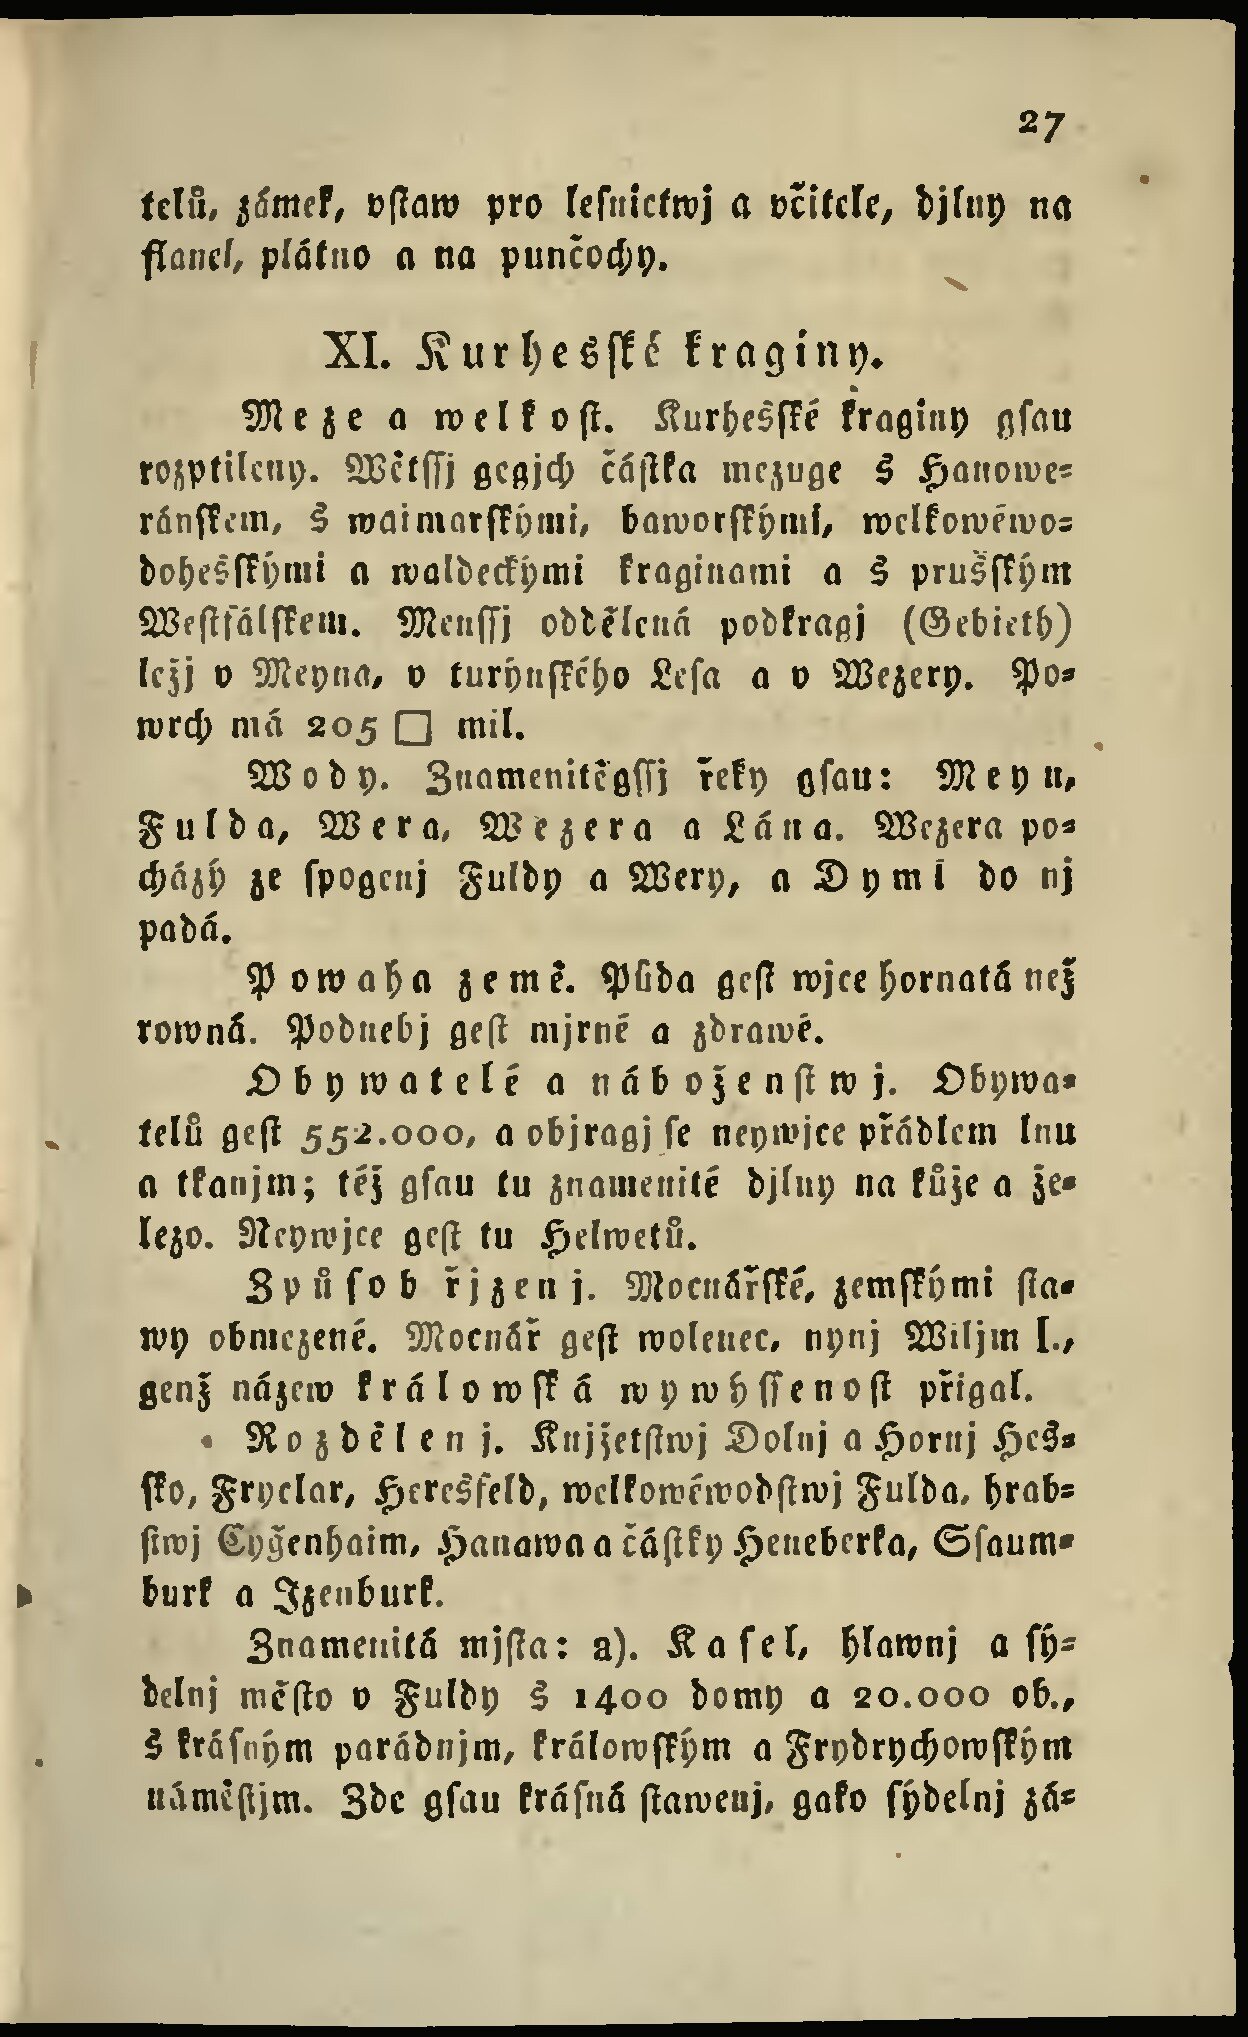 27
telů, zámek, vſtaw pro leſnictwj a včitele, djlny na
flanel, plátno a na punčochy.
XI. Kurhesſké kraginy.
Meze a welkoſt. Kurhesſké kraginy gſau
rozptileny. Wětſſj gegjch částka mezuge s Hanowe=
ránſkem, s waimarſkými, baworſkými, welkowéwo=
dohesſkými a waldeckými kraginami a s prušſkým
Weſtfálſkem. Menſſj oddělená podkragj (Gebieth)
ležj v Meyna, v turýnſkého Leſa a v Wezery. Po=
wrch má 205 □ mil.
Wody. Znamenitěgſſj řeky gſau: Meyn,
Fulda, Wera, Wezera a Lána. Wezera po=
cházý ze ſpogenj Fuldy a Wery, a Dyml do nj
padá.
Powaha země. Půda geſt wjce hornatá než
rowná. Podnebj geſt mjrné a zdrawé.
Obywatelé a náboženſtwj. Obywa=
telů geſt 552.000, a objragj ſe neywjce přádlem lnu
a tkanjm; též gſau tu znamenité djlny na kůže a že=
lezo. Neywjce geſt tu Helwetů.
Způſob řjzenj. Mocnářſké, zemſkými ſta=
wy obmezené. Mocnář geſt wolenec, nynj Wiljm I.,
genž názew králowſká wywhſſenoſt přigal.
Rozdělenj. Knjžetſtwj Dolnj a Hornj Hes=
ſko, Fryclar, Heresfeld, welkowéwodſtwj Fulda, hrab=
ſtwj Cygenhaim, Hanawa a čáſtky Heneberka, Sſaum=
burk a Izenburk.
Znamenitá mjſta: a). Kaſel, hlawnj a ſý=
delnj měſto v Fuldy s 1400 domy a 20.000 ob.,
s kráſným parádnjm, králowſkým a Frydrychowſkým
náměſtjm. Zde gſau kráſná ſtawenj, gako ſýdelnj zá=